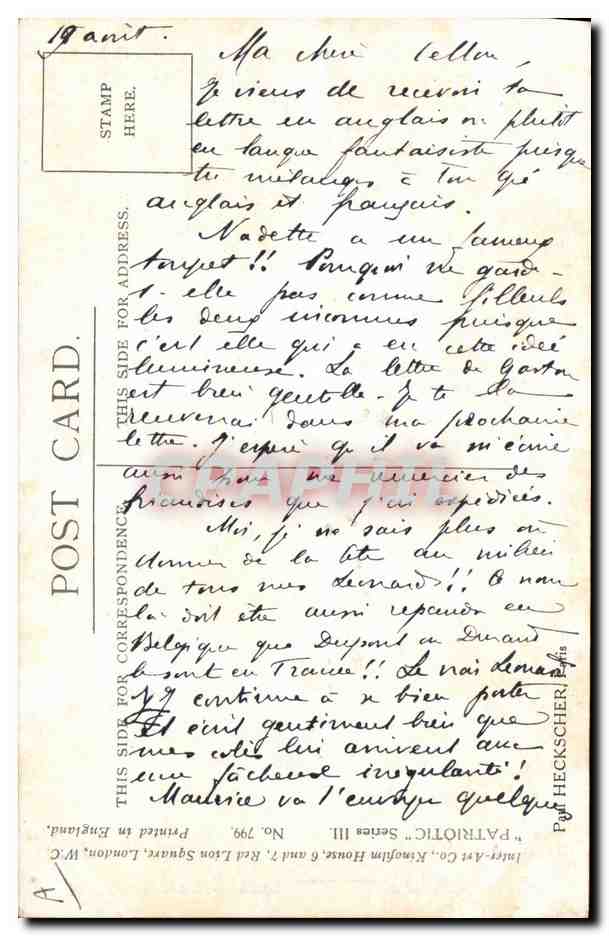 19 août.
Ma chère
Je viens de recevoir ta
lettre en anglais ou plutôt
en langue fantaisiste puisque
tu mélanges à ton gré
anglais et français.
Nadette a un fameux
toupet!! Pourquoi ne garde-
t-elle pas comme filleuls
les deux inconnus puisque
c'est elle qui a eu cette idée
lumineuse. La lettre de Gaston
est bien gentille. Je te la
renverrai dans ma prochaine
lettre. J'espère qu'il va m'écrire
aussi pour me remercier des
friandises que j'ai expédiées.
Moi, je ne sais plus où
donner de la tête au milieu
de tous mes Leonard!! Ce nom
là doit être aussi répandu en
Belgique que Dupont ou Durand
le sont en France!! Le vrai Leonard
continue à se bien porter
et écrit gentiment bien que
mes colis lui arrivent avec
une fâcheuse irrégularité!
Maurice va l'envoyer quelque
STAMP
HERE.
POST CARD.
THIS SIDE FOR ADDRESS.
THIS SIDE FOR CORRESPONDENCE
Paul HECKSCHER, Paris
Inter-Art Co., Kinofilm House, 6 and 7, Red Lion Square, London, W.C.
"PATRIOTIC" Series III. No. 799. Printed in England.
A